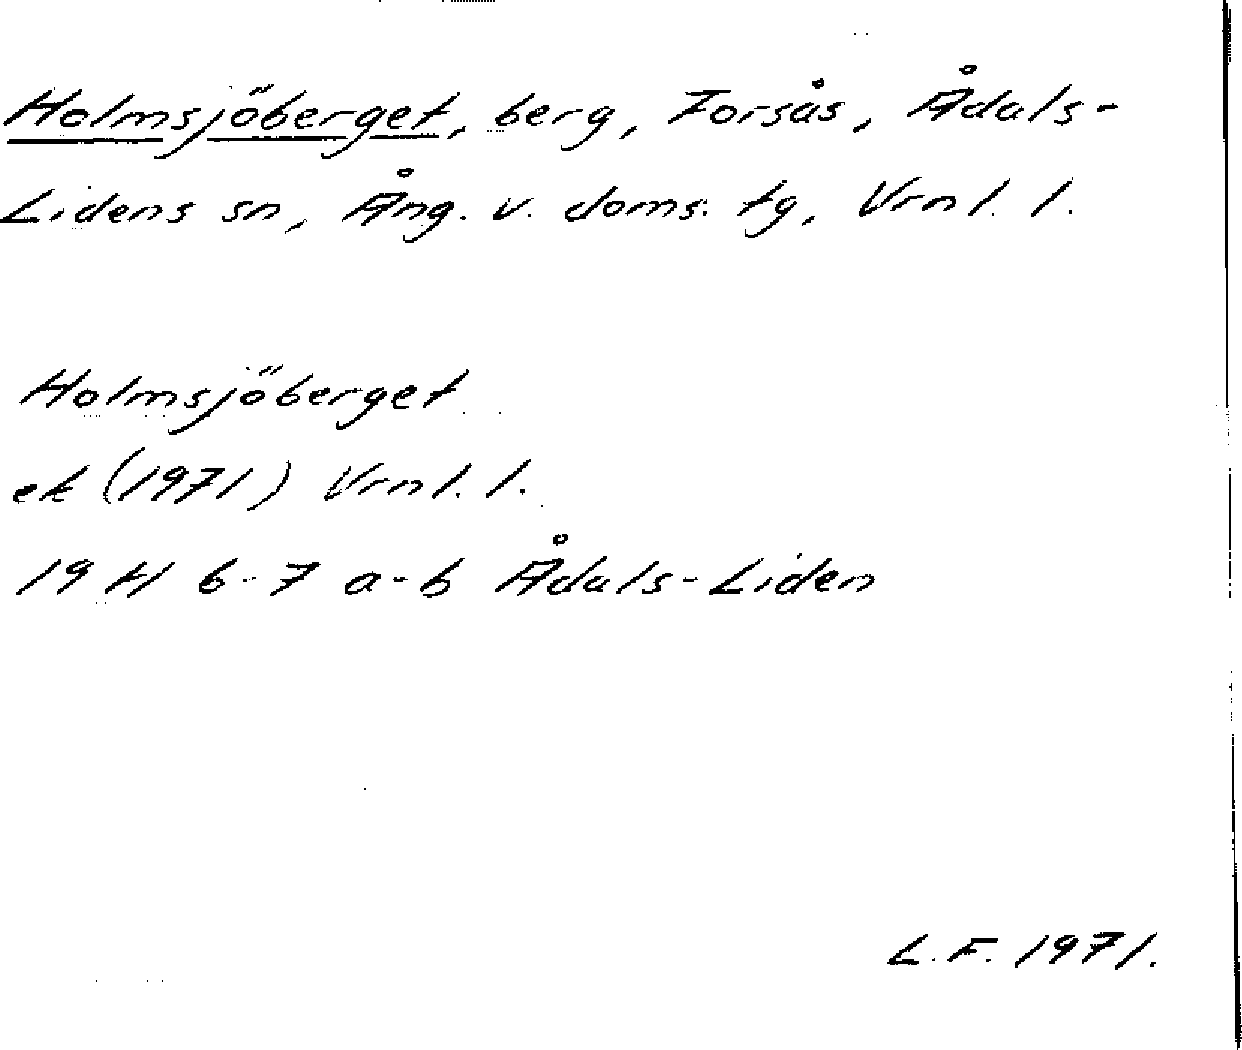 Holmsjöberget, berg, Forsås, Ådals-
Lidens sn, Ång. v. doms. tg, Vrnl. l.
Holmsjöberget
ek (1971) Vrnl. l.
19 H 6-7 a-b Ådals-Liden
L.F. 1971.